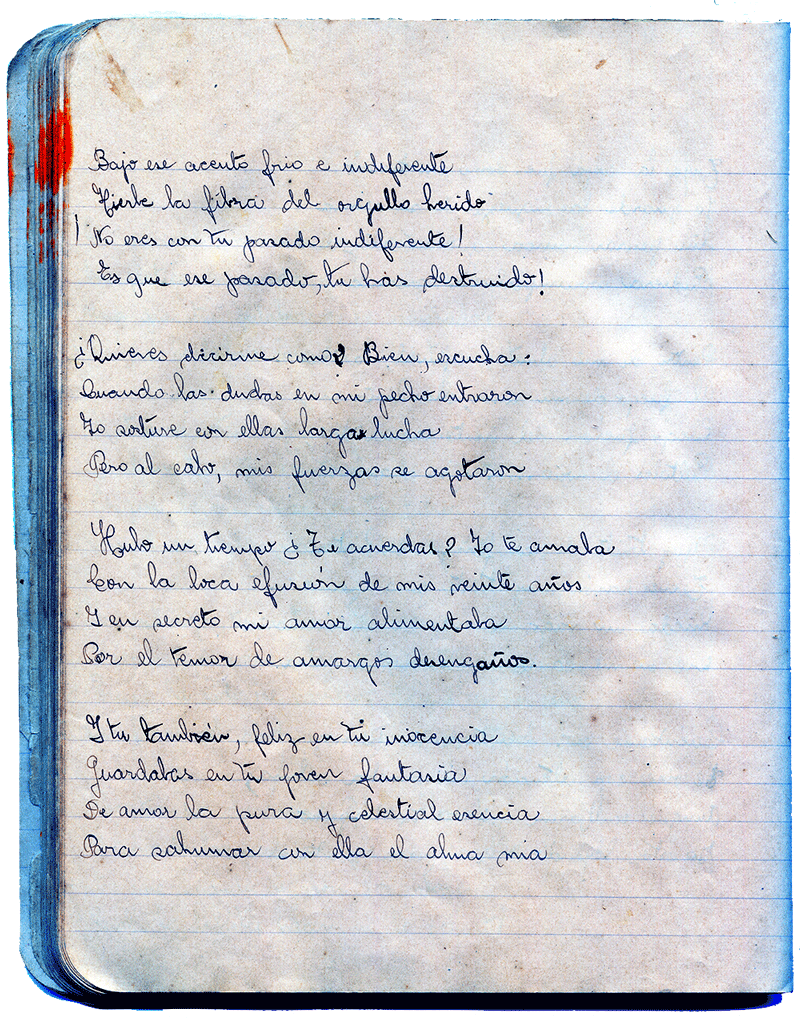 Bajo ese acento frio e indiferente
Hierbe la fibra del orgullo herido
! No eres con tu pasado indiferente!
Es que ese pasado, tu has destruido!
¿Quieres decirme como? Bien, escucha:
Cuando las dudas en mi pecho entraron
Yo sostuve con ellas larga lucha
Pero al cabo, mis fuerzas se agotaron
Hubo un tiempo ¿Te acuerdas? Yo te amaba
Con la loca efusión de mis veinte años
Y en secreto mi amor alimentaba
Por el temor de amargos desengaños.
Y tu también, feliz en tu inocencia
Guardabas en tu joven fantasia
De amor la pura y celestial esencia
Para sahumar con ella el alma mia